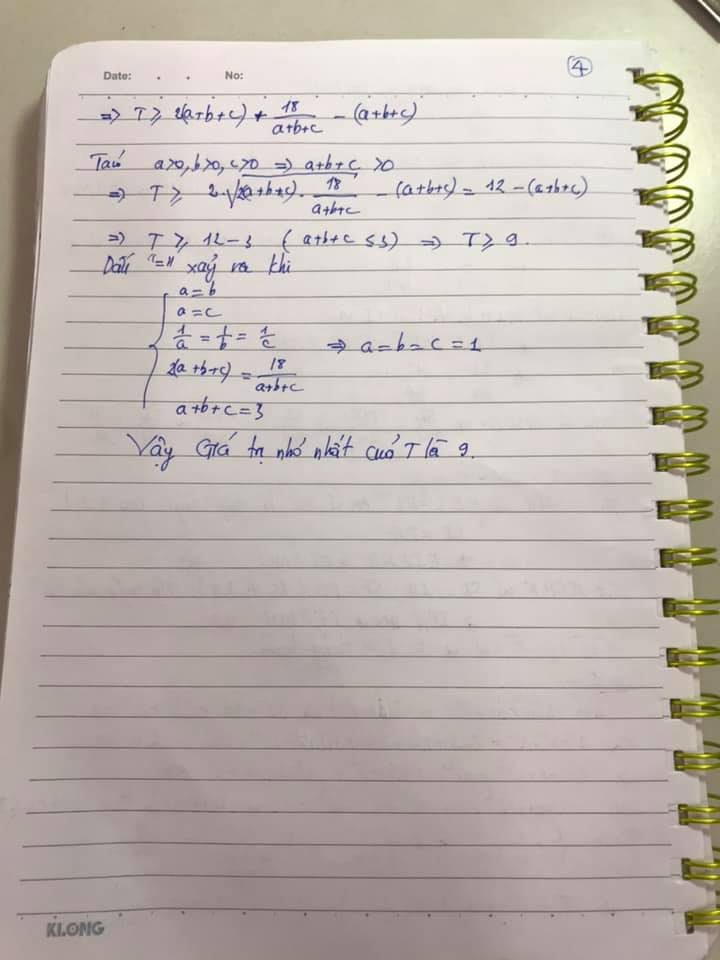 4
Date: . . No:
=> T ≥ 2(a+b+c) + 18/(a+b+c) - (a+b+c)
Ta có a>0, b>0, c>0 => a+b+c >0
=> T ≥ 2.√(2(a+b+c) . 18/(a+b+c)) - (a+b+c) = 12 - (a+b+c)
=> T ≥ 12 - 3 ( a+b+c ≤ 3) => T ≥ 9.
Dấu "=" xảy ra khi
a = b
a = c
1/a = 1/b = 1/c => a = b = c = 1
2(a+b+c) = 18/(a+b+c)
a+b+c = 3
Vậy Giá trị nhỏ nhất của T là 9.
KLONG